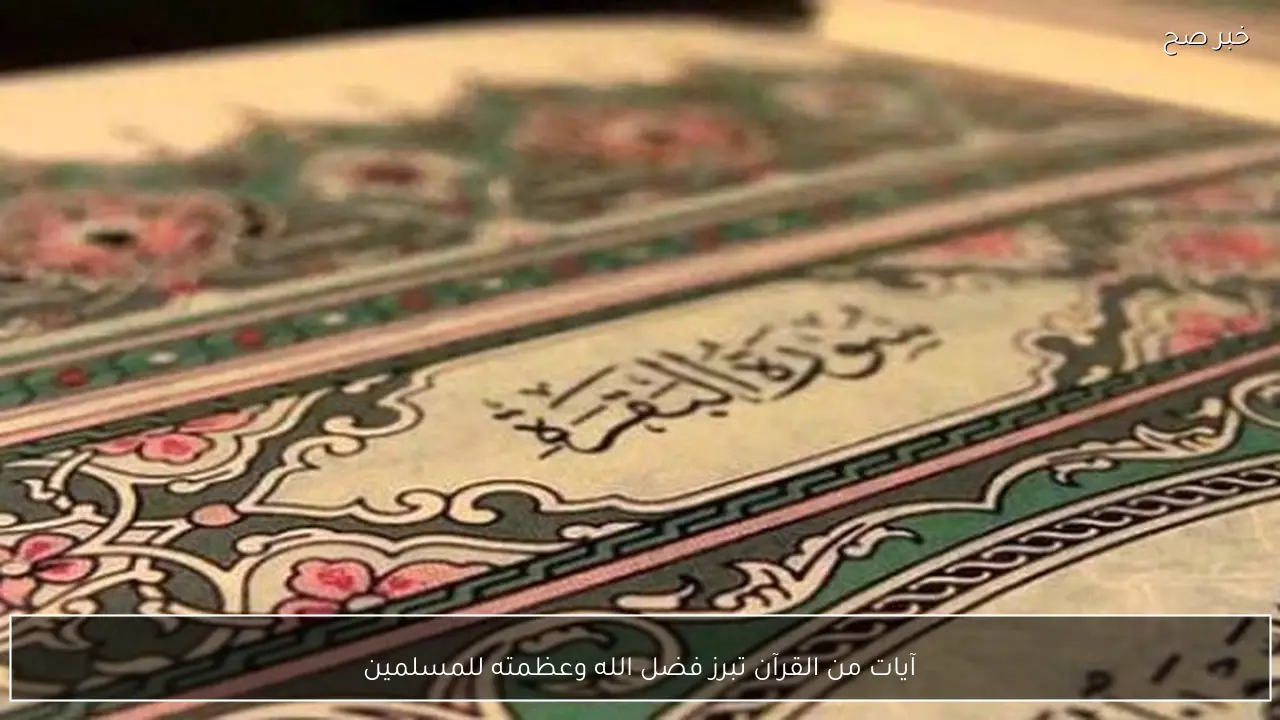 خبر صح
سورة البقرة
آيات من القرآن تبرز فضل الله وعظمته للمسلمين